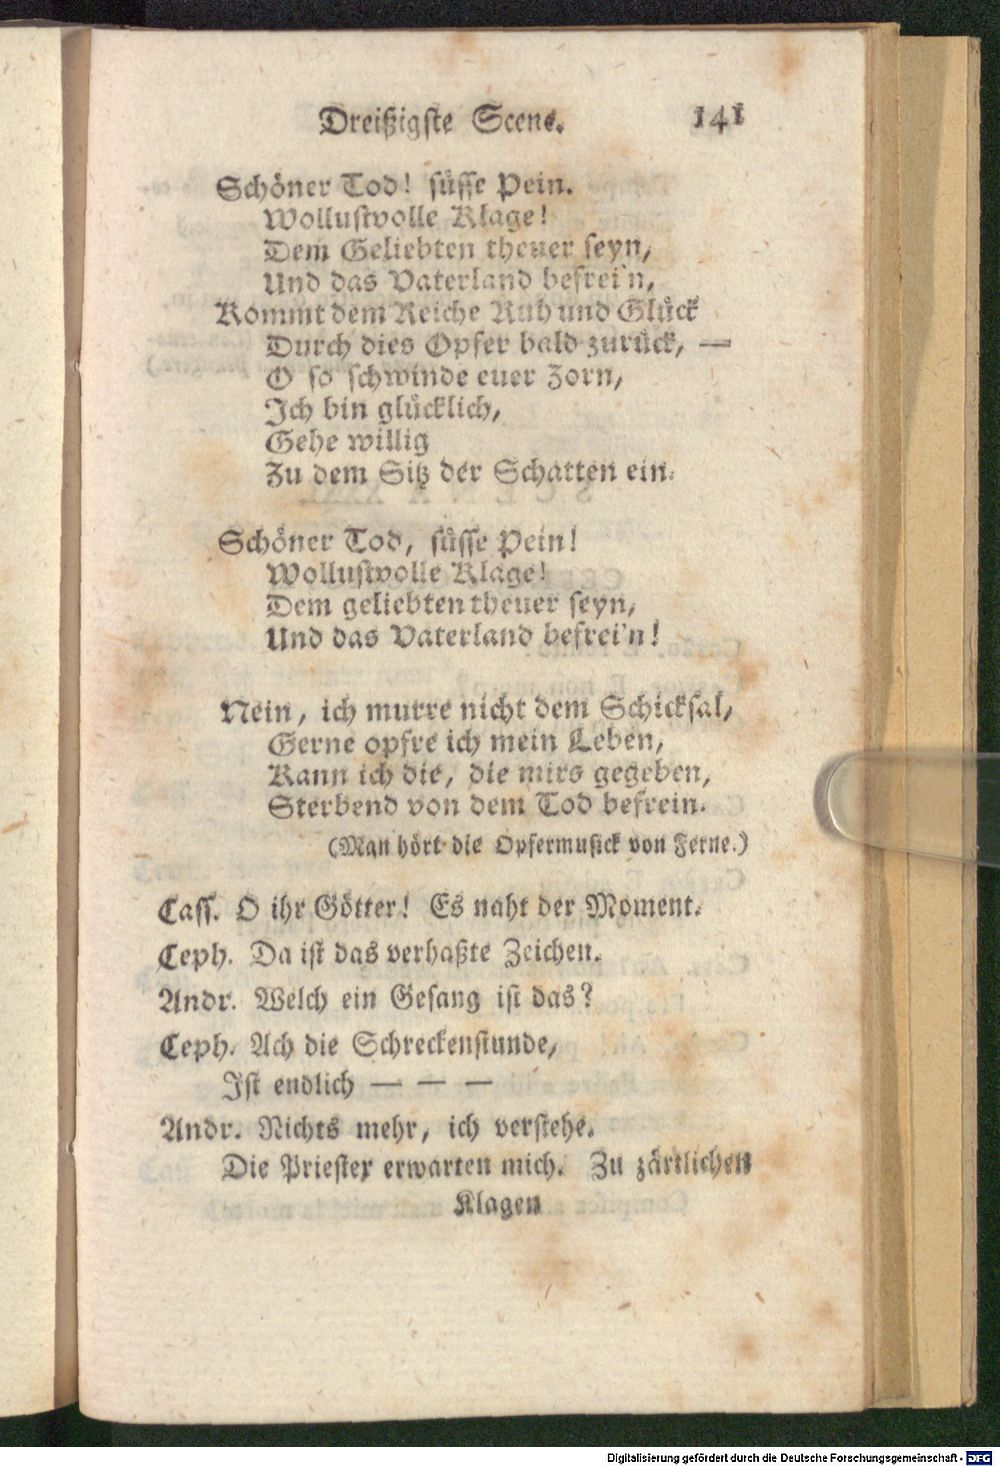 Dreißigste Scene. 141
Schöner Tod! süsse Pein.
Wollustvolle Klage!
Dem Geliebten theuer seyn,
Und das Vaterland befrei'n,
Kommt dem Reiche Ruh und Glück
Durch dies Opfer bald zurück, —
O so schwinde euer Zorn,
Ich bin glücklich,
Gehe willig
Zu dem Sitz der Schatten ein.
Schöner Tod, süsse Pein!
Wollustvolle Klage!
Dem geliebten theuer seyn,
Und das Vaterland befrei'n!
Nein, ich murre nicht dem Schicksal,
Gerne opfre ich mein Leben,
Kann ich die, die mirs gegeben,
Sterbend von dem Tod befrein.
(Man hört die Opfermusick von Ferne.)
Cass. O ihr Götter! Es naht der Moment.
Ceph. Da ist das verhaßte Zeichen.
Andr. Welch ein Gesang ist das?
Ceph. Ach die Schreckenstunde,
Ist endlich — — —
Andr. Nichts mehr, ich verstehe.
Die Priester erwarten mich. Zu zärtlichen
Klagen
Digitalisierung gefördert durch die Deutsche Forschungsgemeinschaft - DFG